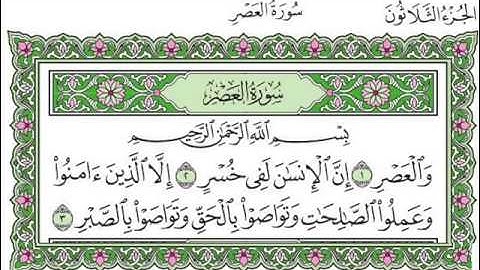 الجزء الثلاثون سورة العصر
سُورَةُ الْعَصْرِ
بِسْمِ ٱللَّهِ ٱلرَّحْمَٰنِ ٱلرَّحِيمِ
وَٱلْعَصْرِ ١ إِنَّ ٱلْإِنسَٰنَ لَفِى خُسْرٍ ٢ إِلَّا ٱلَّذِينَ ءَامَنُوا۟
وَعَمِلُوا۟ ٱلصَّٰلِحَٰتِ وَتَوَاصَوْا۟ بِٱلْحَقِّ وَتَوَاصَوْا۟ بِٱلصَّبْرِ ٣